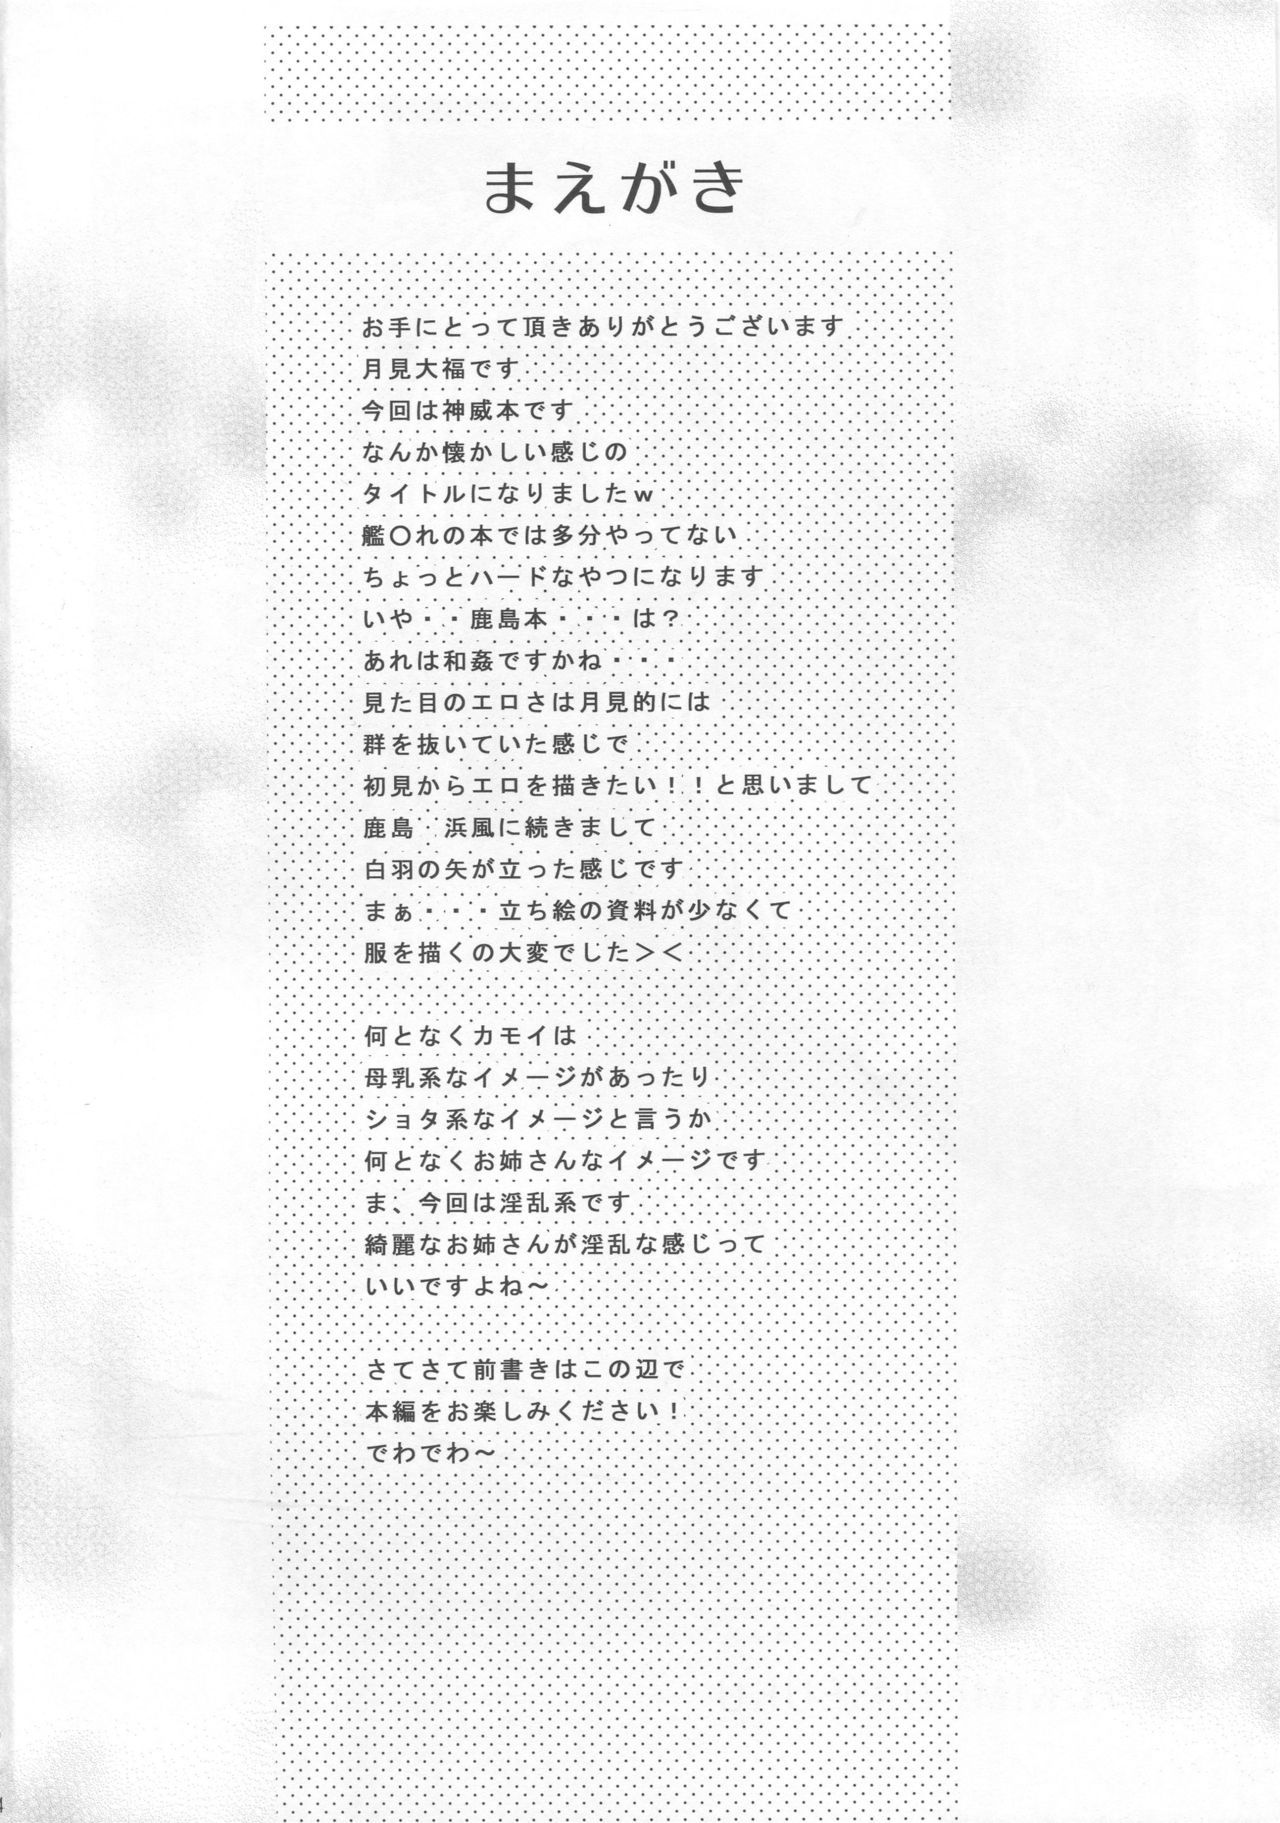 まえがき
お手にとって頂きありがとうございます
月見大福です
今回は神威本です
なんか懐かしい感じの
タイトルになりましたｗ
艦〇れの本では多分やってない
ちょっとハードなやつになります
いや・・鹿島本・・・は？
あれは和姦ですかね・・・
見た目のエロさは月見的には
群を抜いていた感じで
初見からエロを描きたい！！と思いまして
鹿島・浜風に続きまして
白羽の矢が立った感じです
まぁ・・・立ち絵の資料が少なくて
服を描くの大変でした＞＜
何となくカモイは
母乳系なイメージがあったり
ショタ系なイメージと言うか
何となくお姉さんなイメージです
ま、今回は淫乱系です
綺麗なお姉さんが淫乱な感じって
いいですよね～
さてさて前書きはこの辺で
本編をお楽しみください！
でわでわ～